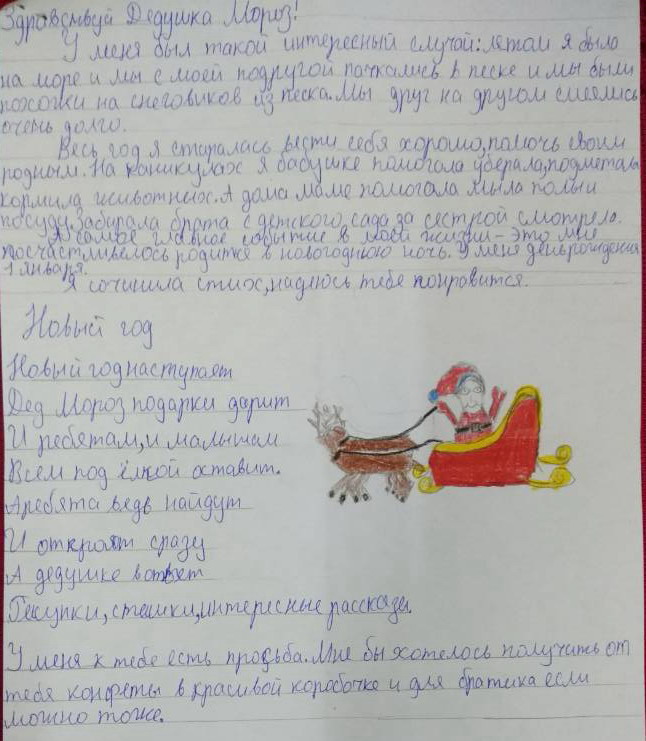 Здравствуй Дедушка Мороз!
У меня был такой интересный случай: летом я была
на море и мы с моей подругой пачкались в песке и мы были
похожи на снеговиков из песка. Мы друг на другом смеялись
очень долго.
Весь год я старалась вести себя хорошо, помочь своим
родным. На каникулах я бабушке помогала уберала, подметала
кормила животных. А дома маме помогала мыла полы и
посуду, забирала брата с детского сада, за сестрой смотрела.
А самое главное событие в моей жизни - это мне
посчастливелось родится в новогоднюю ночь. У меня день рождения
1 января.
Я сочинила стих, надеюсь тебе понравится.
Новый год
Новый год наступает
Дед Мороз подарки дарит
И ребятам, и малышам
Всем под ёлкой оставит.
А ребята ведь найдут
И откроят сразу
А дедушке в ответ
Рисунки, стешки, интересные рассказы.
У меня к тебе есть просьба. Мне бы хотелось получить от
тебя конфеты в красивой коробочке и для братика если
можно тоже.